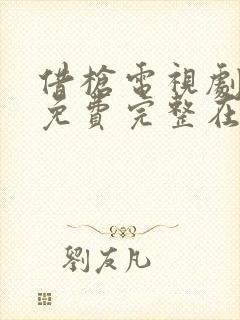 借槍電視劇
免費完整在
劉友凡